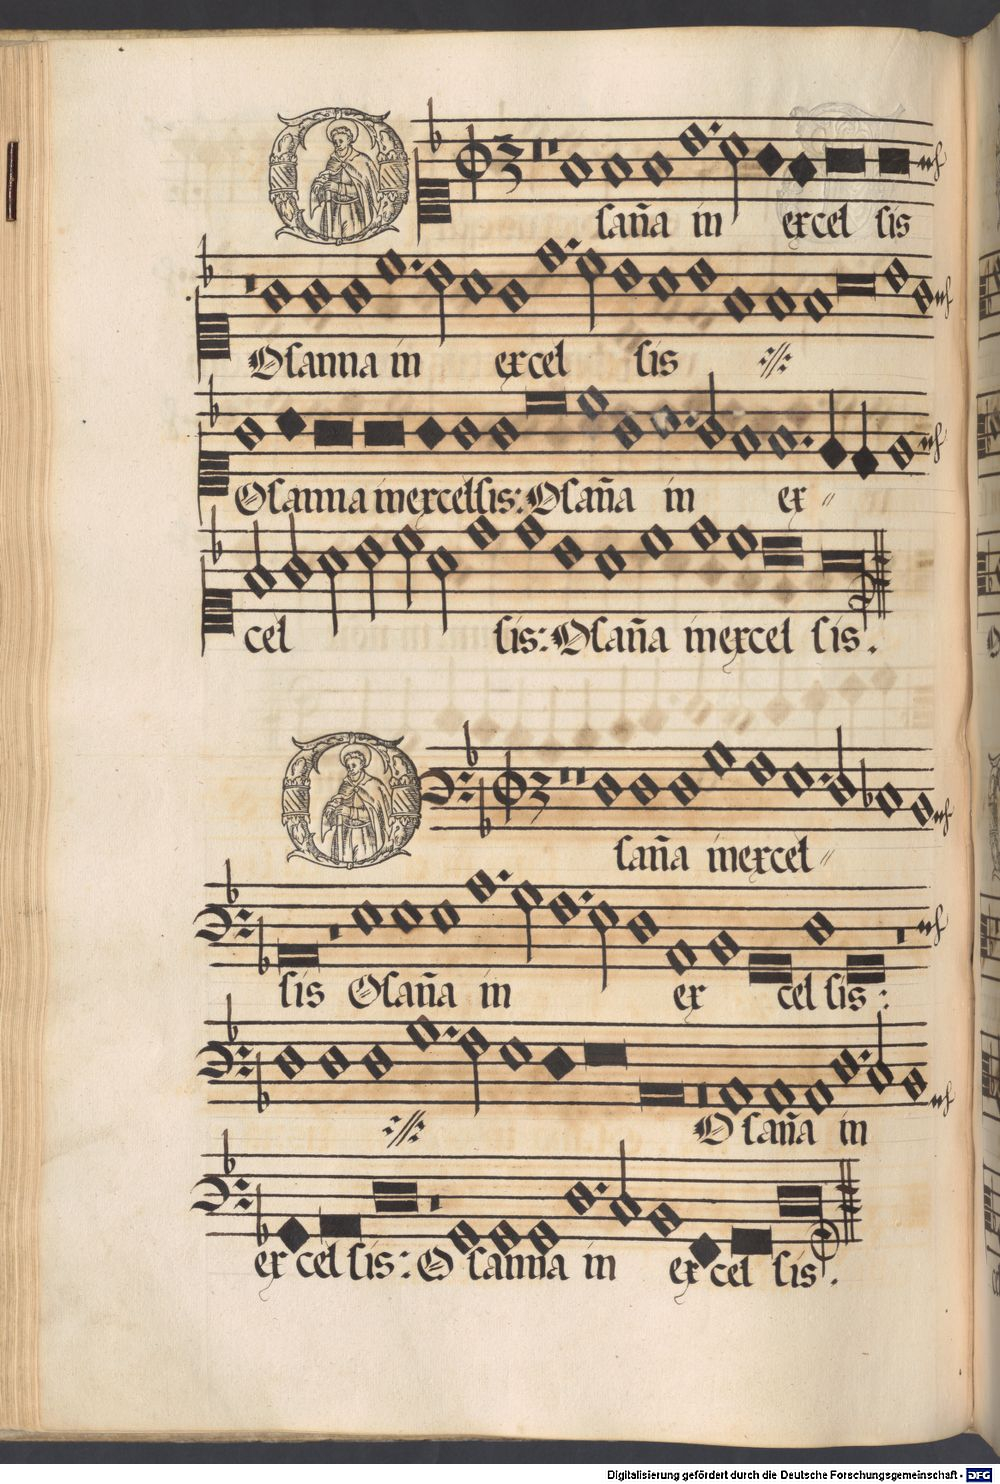 O saña in excel sis
Osanna in excel sis
Osanna in excelsis: Osaña in ex
cel sis: Osaña in excel sis.
O saña in excel
sis Osaña in ex cel sis:
Osaña in
excelsis: Osanna in excel sis.
Digitalisierung gefördert durch die Deutsche Forschungsgemeinschaft - DFG